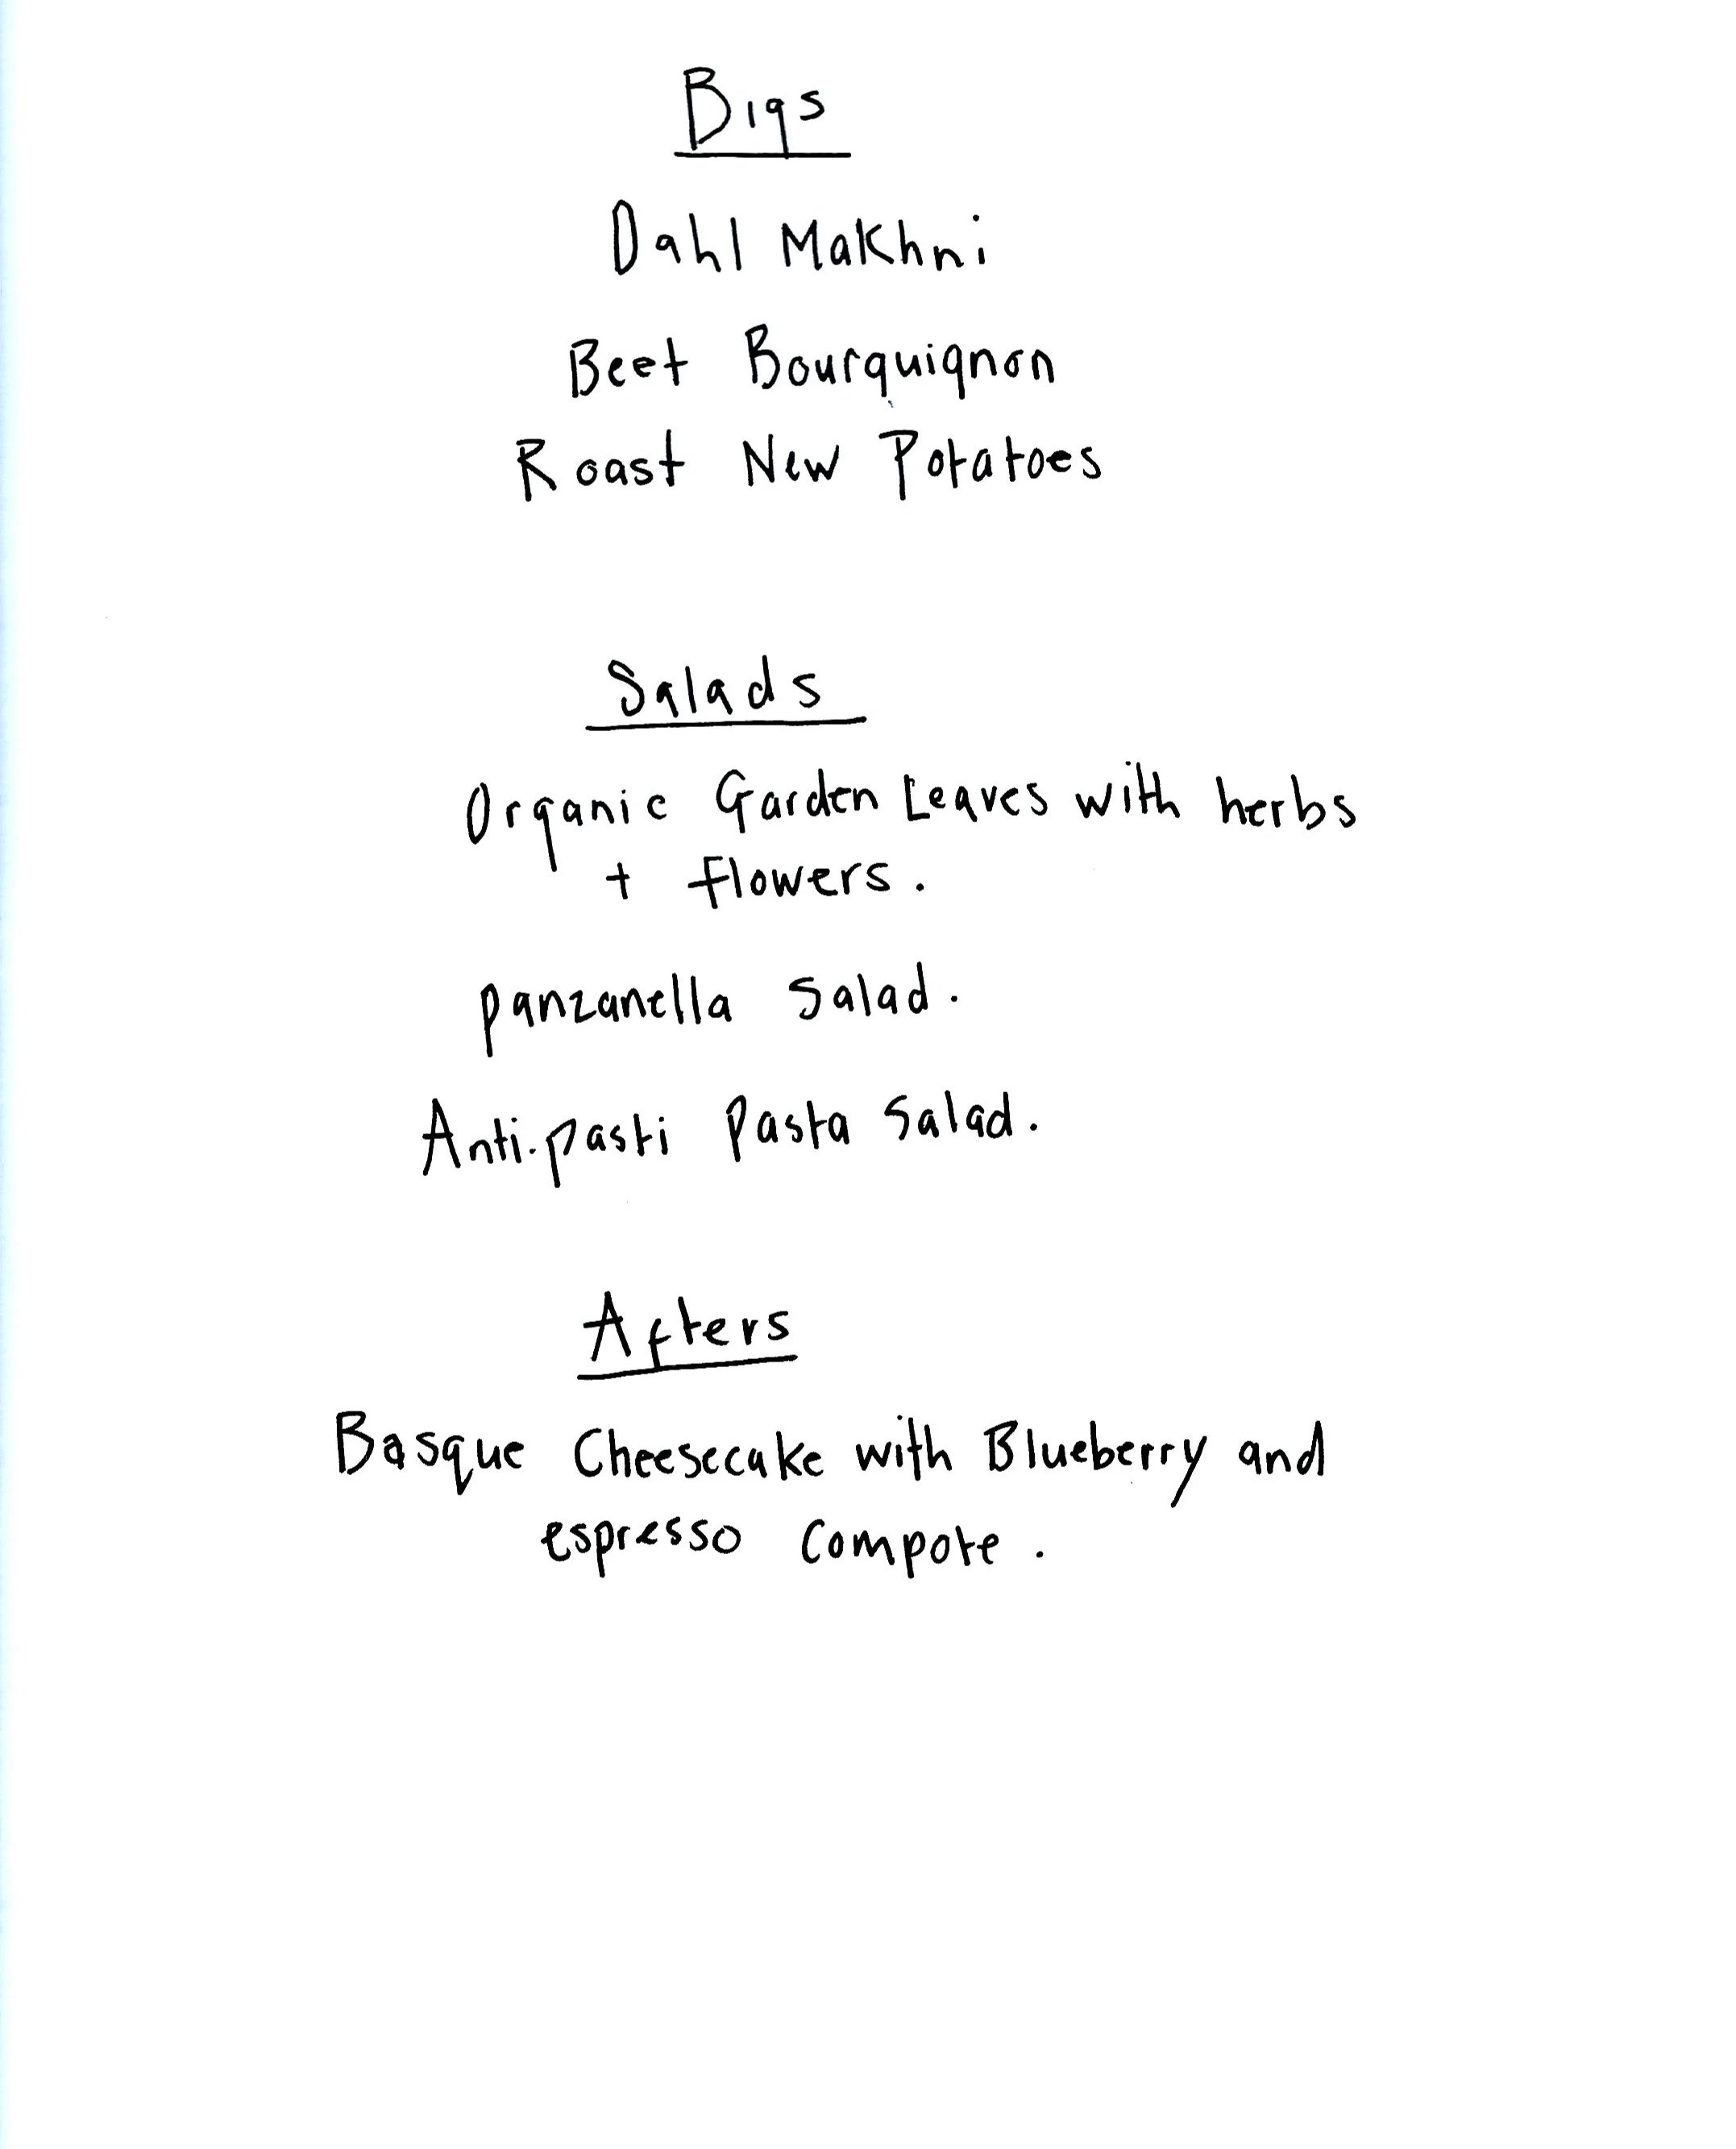 Bigs
Dahl Makhni
Beet Bourguignon
Roast New Potatoes
Salads
Organic Garden Leaves with herbs
+ flowers.
panzanella salad.
Anti-pasti Pasta Salad.
Afters
Basque Cheesecake with Blueberry and
espresso compote.